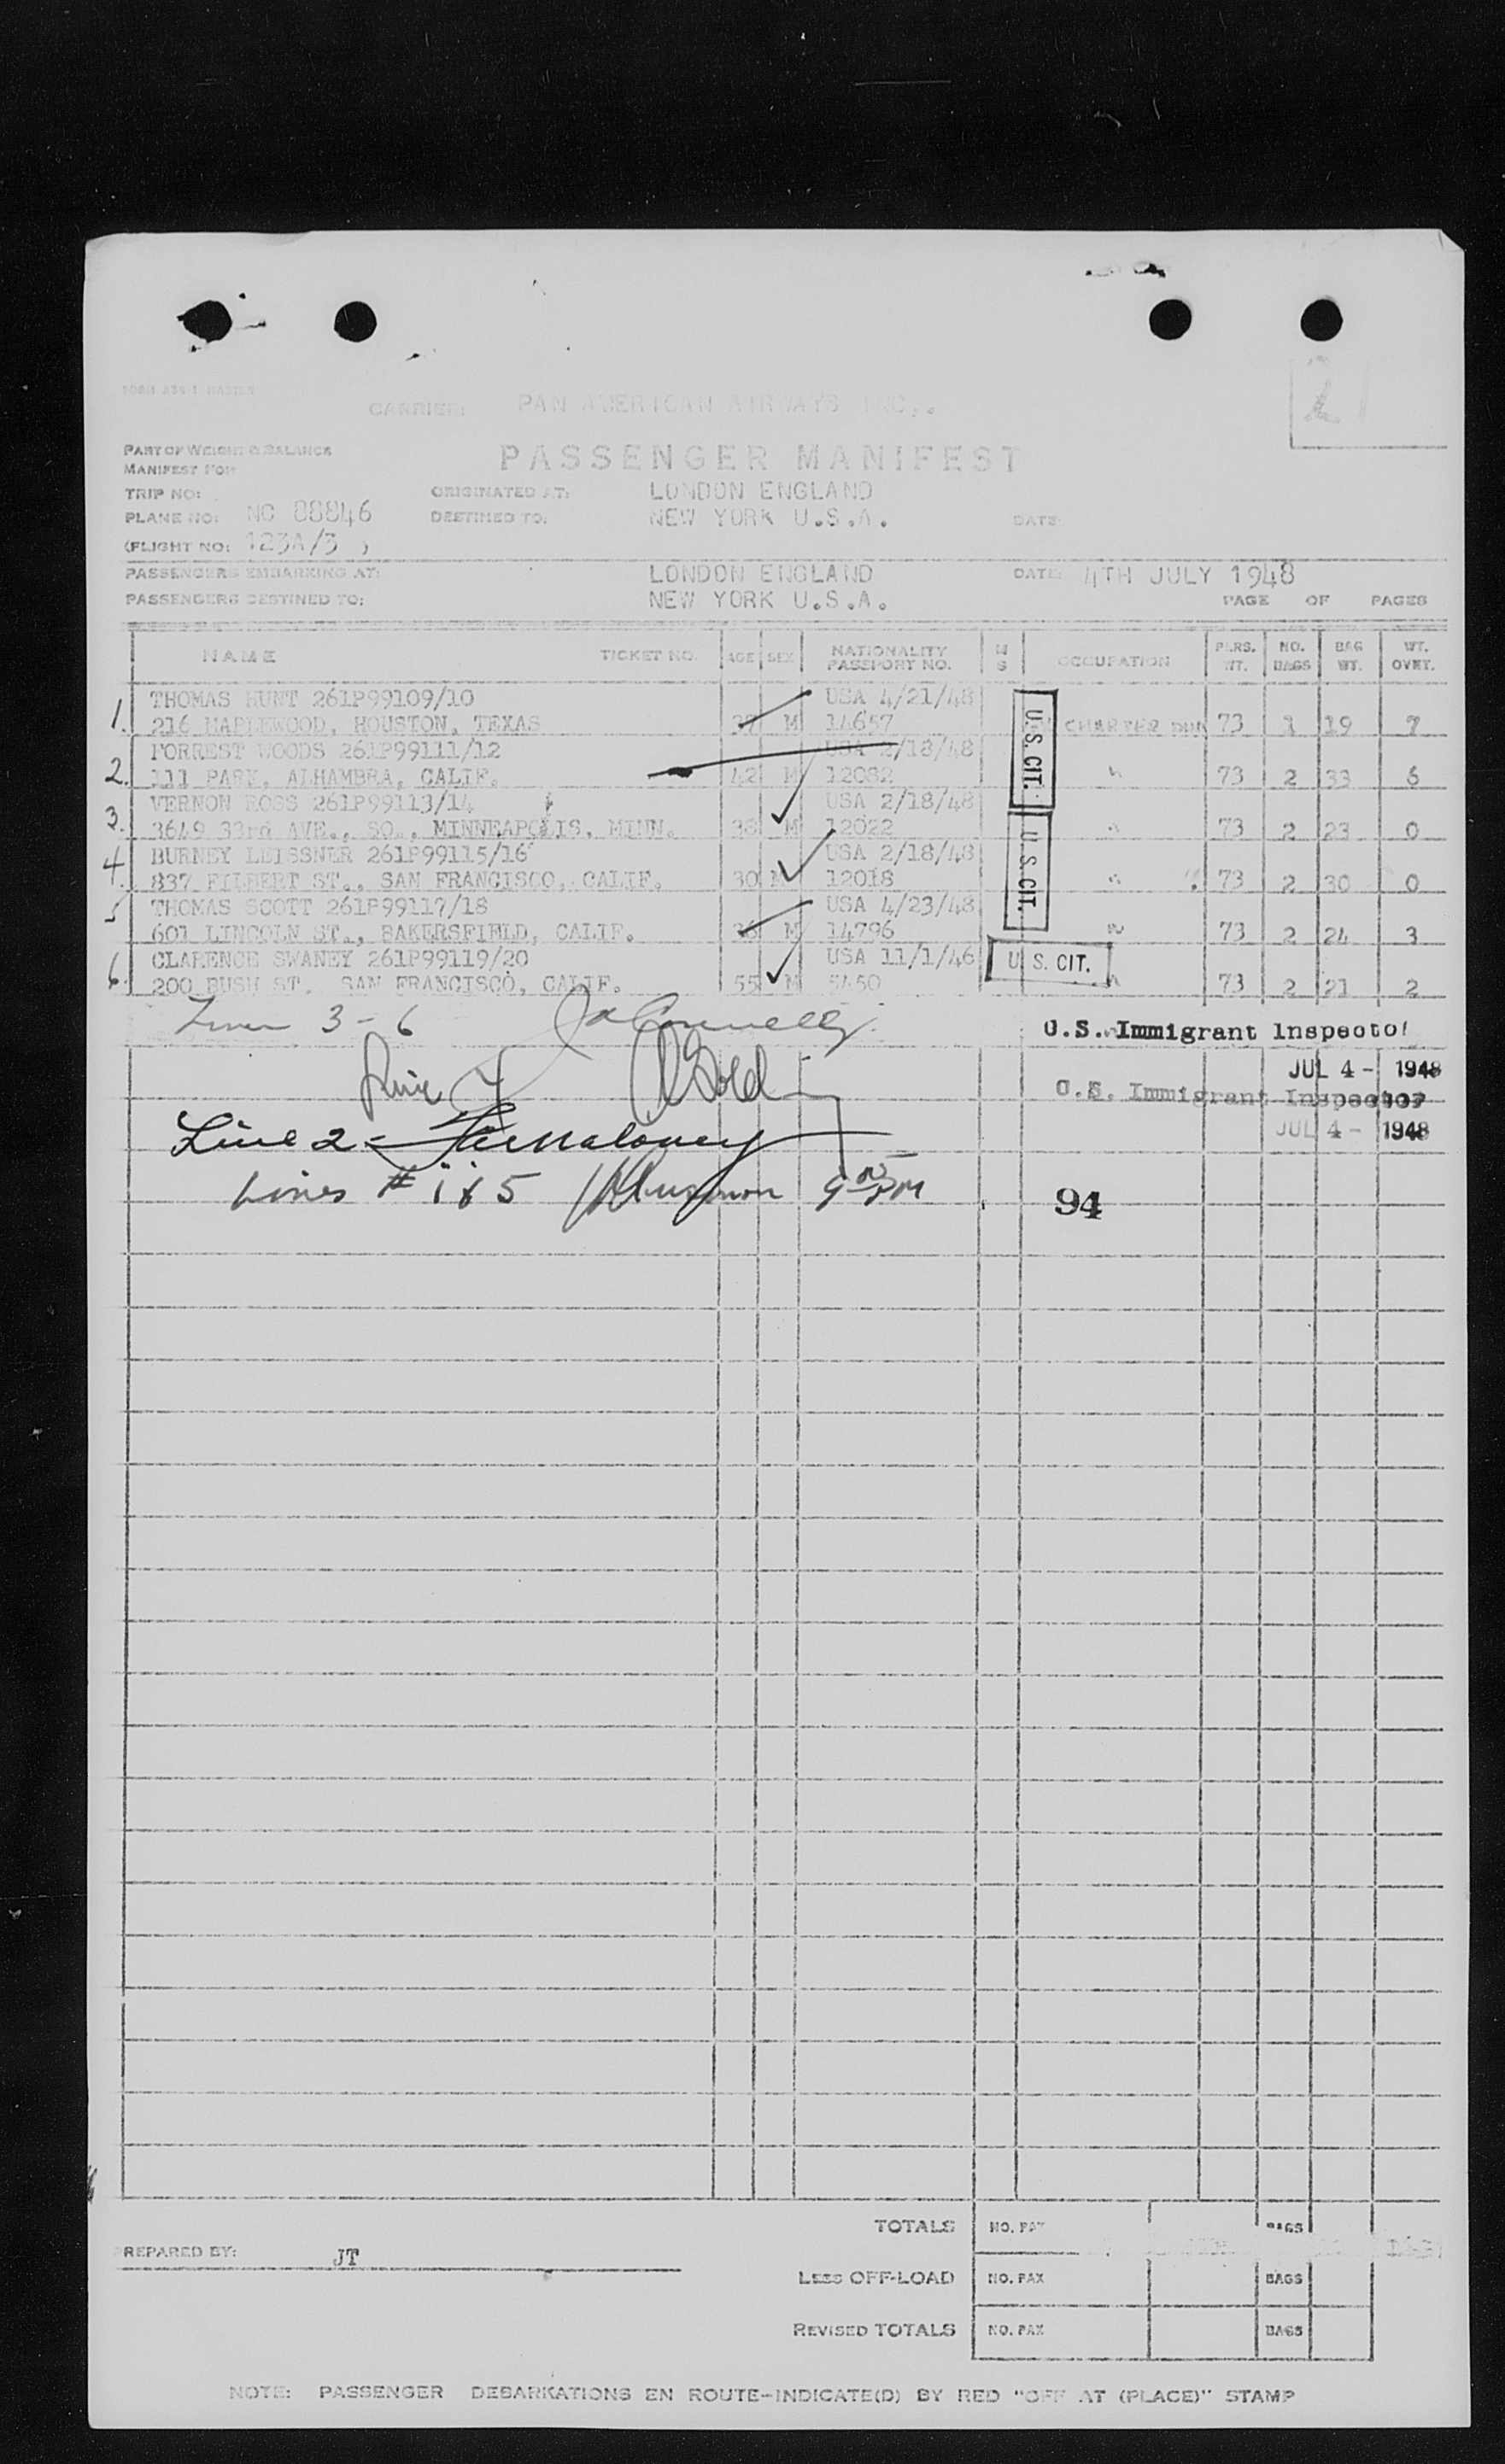 2
CARRIER: PAN AMERICAN AIRWAYS INC..
PART OF WEIGHT & BALANCE
MANIFEST FOR
PASSENGER MANIFEST
TRIP NO:
ORIGINATED AT: LONDON ENGLAND
PLANE NO: NC 88846
DESTINED TO: NEW YORK U.S.A. DATE:
(FLIGHT NO: 123A/3 )
PASSENGERS EMBARKING AT: LONDON ENGLAND DATE: 4TH JULY 1948
PASSENGERS DESTINED TO: NEW YORK U.S.A. PAGE OF PAGES
NAME TICKET NO. AGE SEX NATIONALITY PASSPORT NO. M S OCCUPATION PERS. WT. NO. BAGS BAG WT. WT. OVRT.
THOMAS HUNT 261P99109/10 USA 4/21/48
1. 216 MAPLEWOOD, HOUSTON, TEXAS 37 M 14657 CHARTER 73 1 19 7
FORREST WOODS 261P99111/12 USA 2/18/48
2. 111 PARK, ALHAMBRA, CALIF. 42 M 12082 " 73 2 33 6
VERNON ROSS 261P99113/14 USA 2/18/48
3. 3649 33rd AVE., SO., MINNEAPOLIS, MINN. 38 M 12022 " 73 2 23 0
BURNEY LEISSNER 261P99115/16 USA 2/18/48
4. 837 FILBERT ST., SAN FRANCISCO, CALIF. 30 M 12018 " 73 2 30 0
THOMAS SCOTT 261P99117/18 USA 4/23/48
5 601 LINCOLN ST., BAKERSFIELD, CALIF. 36 M 14796 " 73 2 24 3
CLARENCE SWANEY 261P99119/20 USA 11/1/46
6. 200 BUSH ST. SAN FRANCISCO, CALIF. 55 M 5450 " 73 2 21 2
U.S. CIT.
U.S. CIT.
U.S. CIT.
3-6 Connelly U.S. Immigrant Inspector
JUL 4 - 1948
Line 4 Gold U.S. Immigrant Inspector
Line 2- Maloney JUL 4 - 1948
Lines # 1 & 5 9 PM 94
TOTALS NO. PAX BAGS
PREPARED BY: JT
LESS OFF-LOAD NO. PAX BAGS
REVISED TOTALS NO. PAX BAGS
NOTE: PASSENGER DEBARKATIONS EN ROUTE-INDICATE(D) BY RED "OFF AT (PLACE)" STAMP